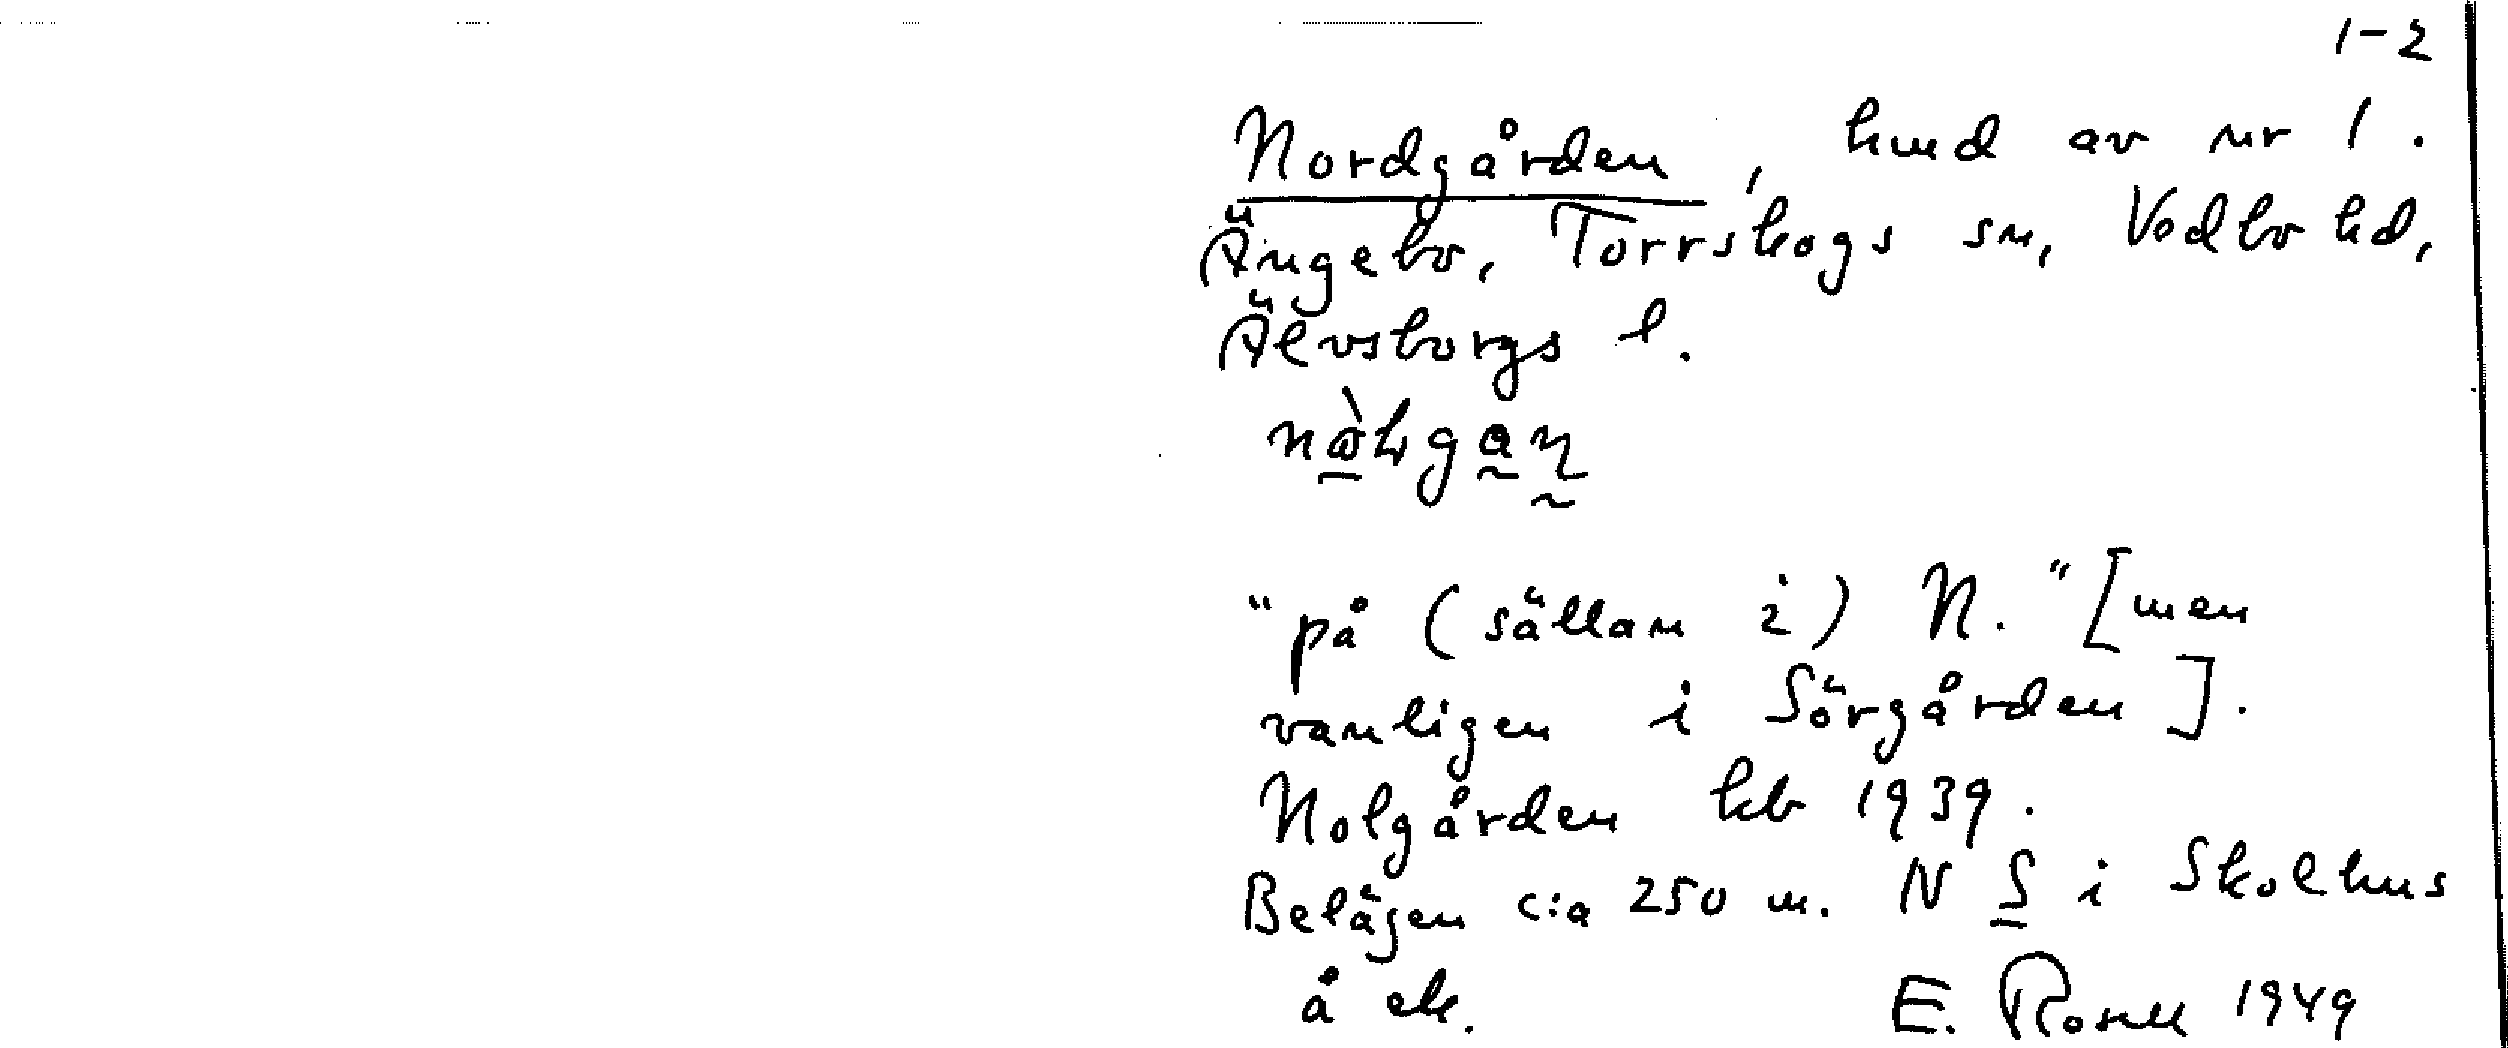 1-2
Nordgården, hmd av nr 1.
Ängebo, Torrskogs sn, Vedbo hd,
Älvsborgs l.
"på (sällan i) N." [men
vanligen i Sörgården].
Nolgården kb 1939.
Belägen c:a 250 m. N S i Skolhus
å ek.
E. Rosell 1949